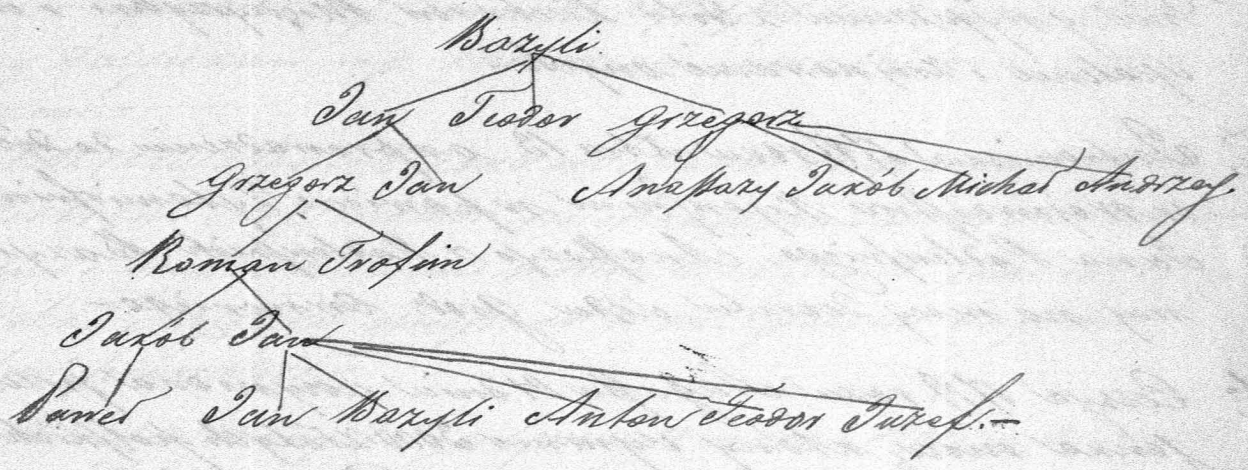 Bazyli
Jan Teodor Grzegorz
Grzegorz Jan Anastazy Jakób Michał Andrzey.
Roman Trofim
Jakób Jan
Paweł Jan Bazyli Anton Teodor Juzef.—